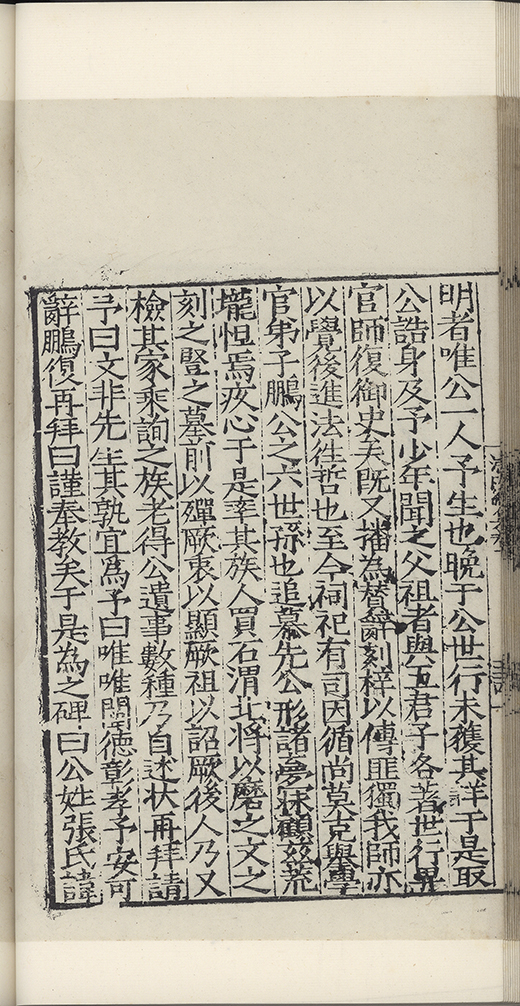 明者唯公一人予生也晚于公世行未獲其詳于是取
公誥身及予少年聞之父祖者與五君子各著世行畀
官師復御史矣既又播為賛辭刻梓以傳匪獨我師亦
以覺後進法徃哲也至今祠祀有司因循尚莫克舉學
官弟子鵬公之六世孫也追慕先公形諸夢寐顧茲荒
壠怛焉疚心于是率其族人買石渭北将以磨之文之
刻之豎之墓前以殫厥衷以顯厥祖以詔厥後人乃又
檢其家乘詢之族老得公遺事數種乃自述状再拜請
予曰文非先生其孰宜為予曰唯唯闡德彰孝予安可
辭鵬復再拜曰謹奉教矣于是為之碑曰公姓張氏諱